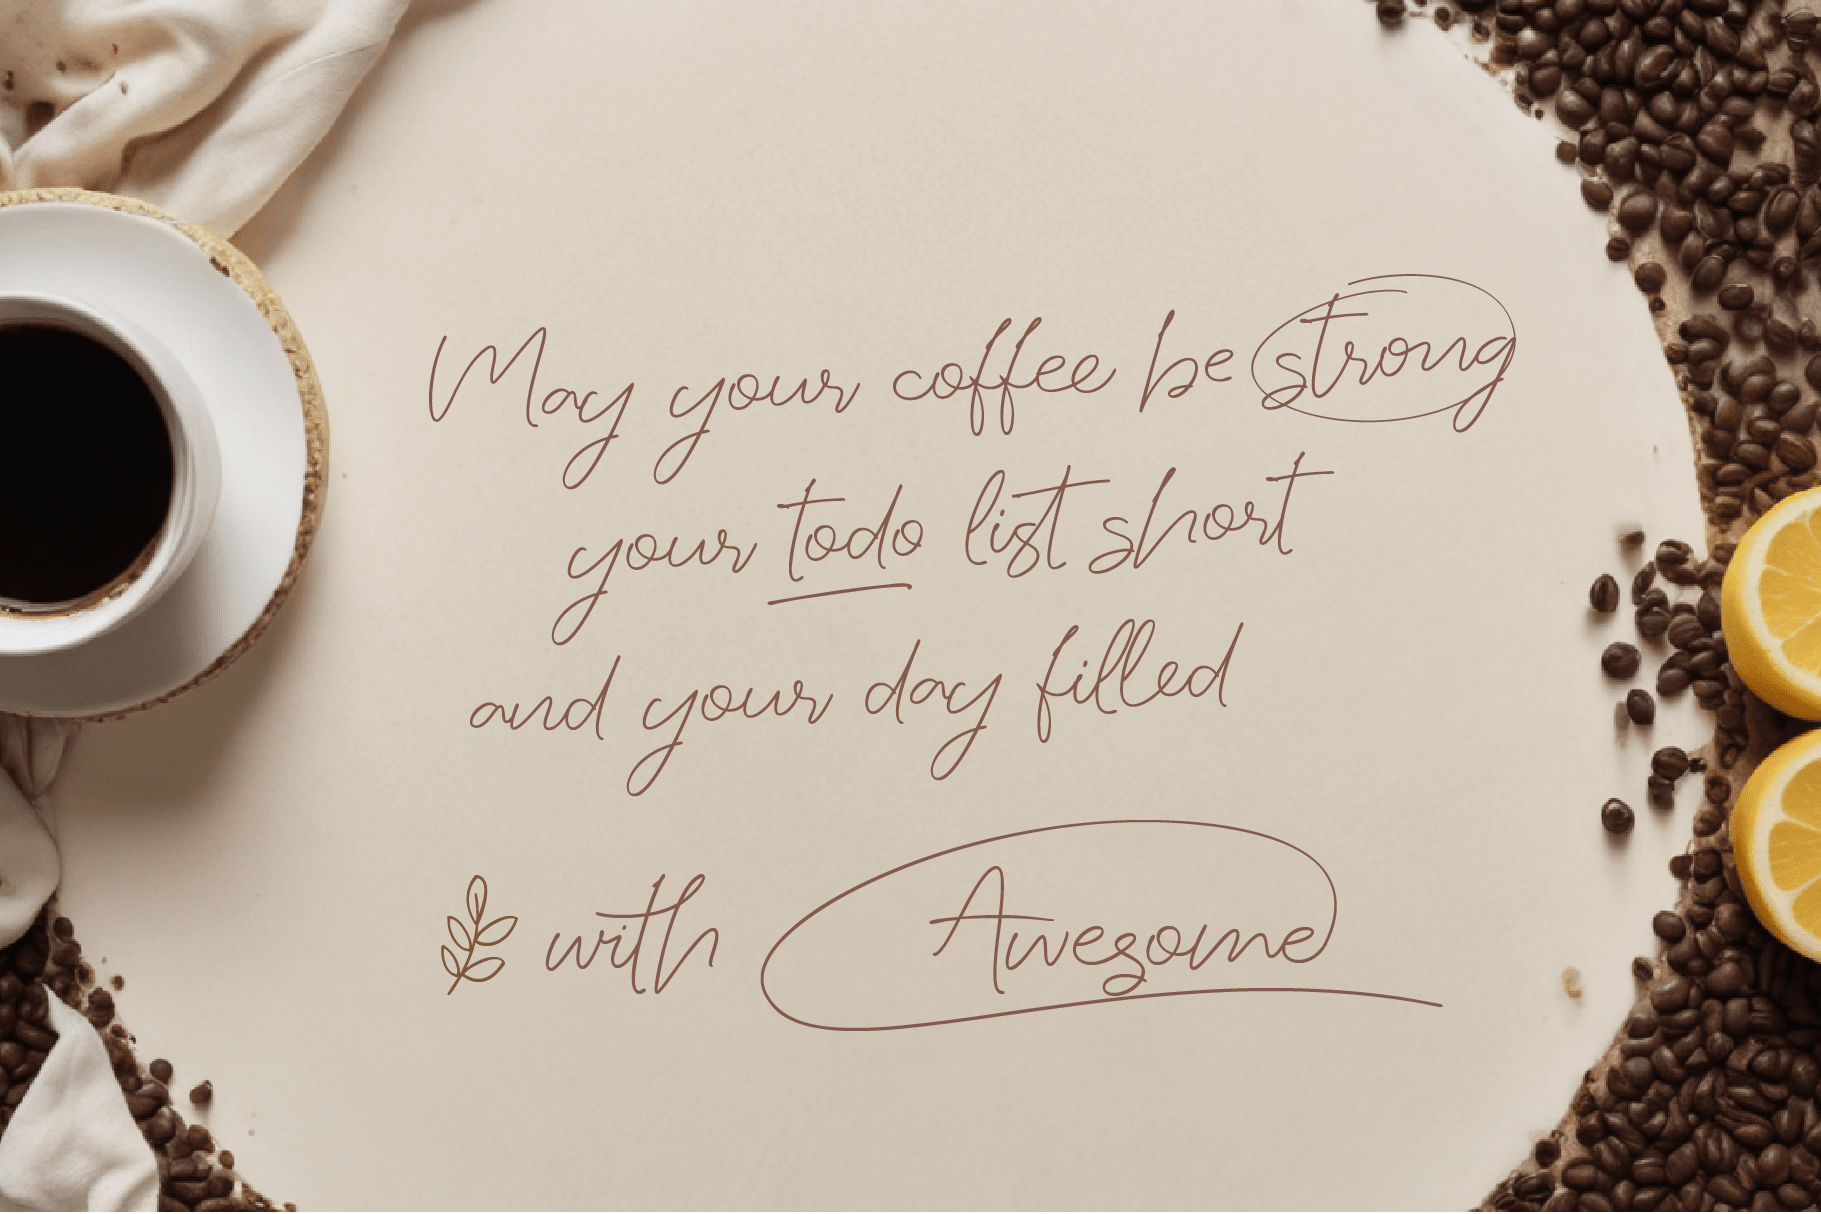 May your coffee be strong
your todo list short
and your day filled
with Awesome